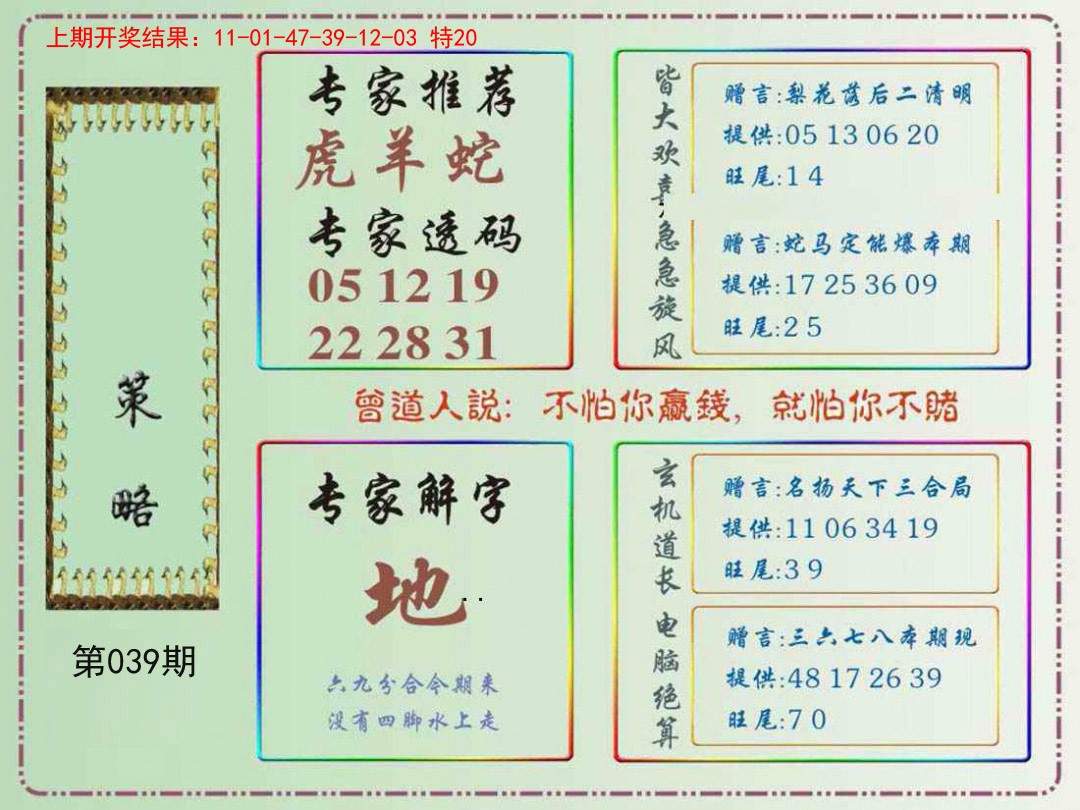 上期开奖结果：11-01-47-39-12-03 特20
策略
第039期
专家推荐
虎羊蛇
专家透码
05 12 19
22 28 31
皆大欢喜
赠言:梨花落后二清明
提供:05 13 06 20
旺尾:1 4
急急旋风
赠言:蛇马定能爆本期
提供:17 25 36 09
旺尾:2 5
曾道人説：不怕你贏錢，就怕你不賭
专家解字
地
六九分合今期来
没有四脚水上走
玄机道长
赠言:名扬天下三合局
提供:11 06 34 19
旺尾:3 9
电脑绝算
赠言:三六七八本期现
提供:48 17 26 39
旺尾:7 0